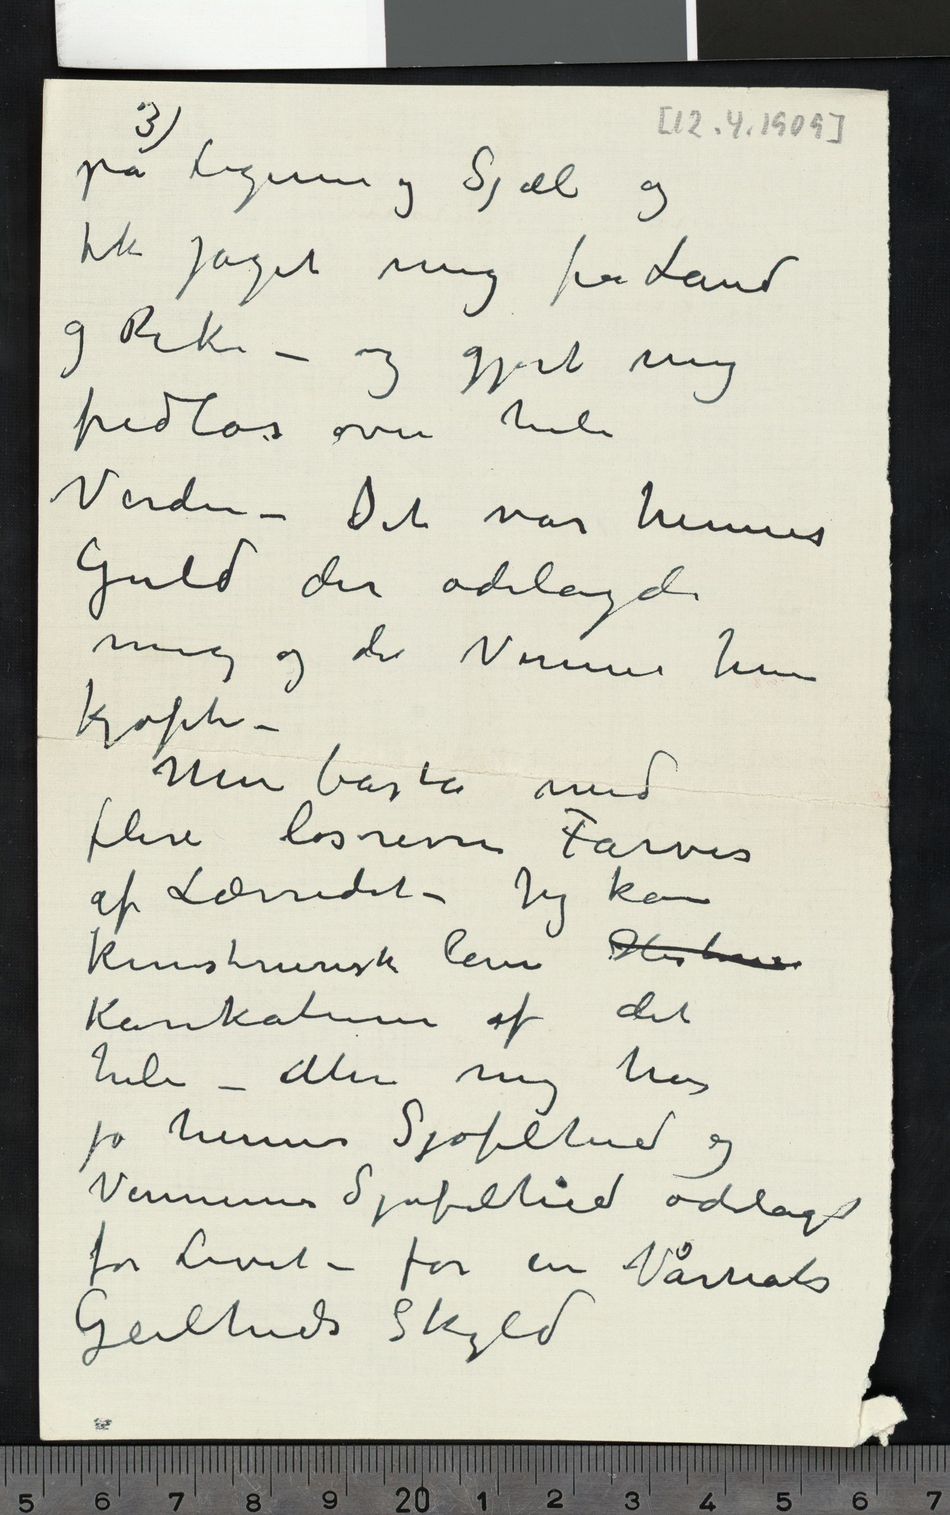 3)
[12.4.1909]
på Legeme og Sjæl og
fik jaget mig fra Land
og Rike – og gjort mig
fredløs over hele
Verden – Det var hennes
Guld der ødelagde
mig og de Venner hun
kjøpte –
Men basta med
flere losrevne Farver
af Lærredet – Jeg kan
kunstnerisk lave
Karikaturer af det
hele – Men mig har
jo hennes Sjofelhed og
Vennernes Sjofelhed ødelagt
for Livet – for en Vårnats
Geilheds Skyld
5 6 7 8 9 20 1 2 3 4 5 6 7